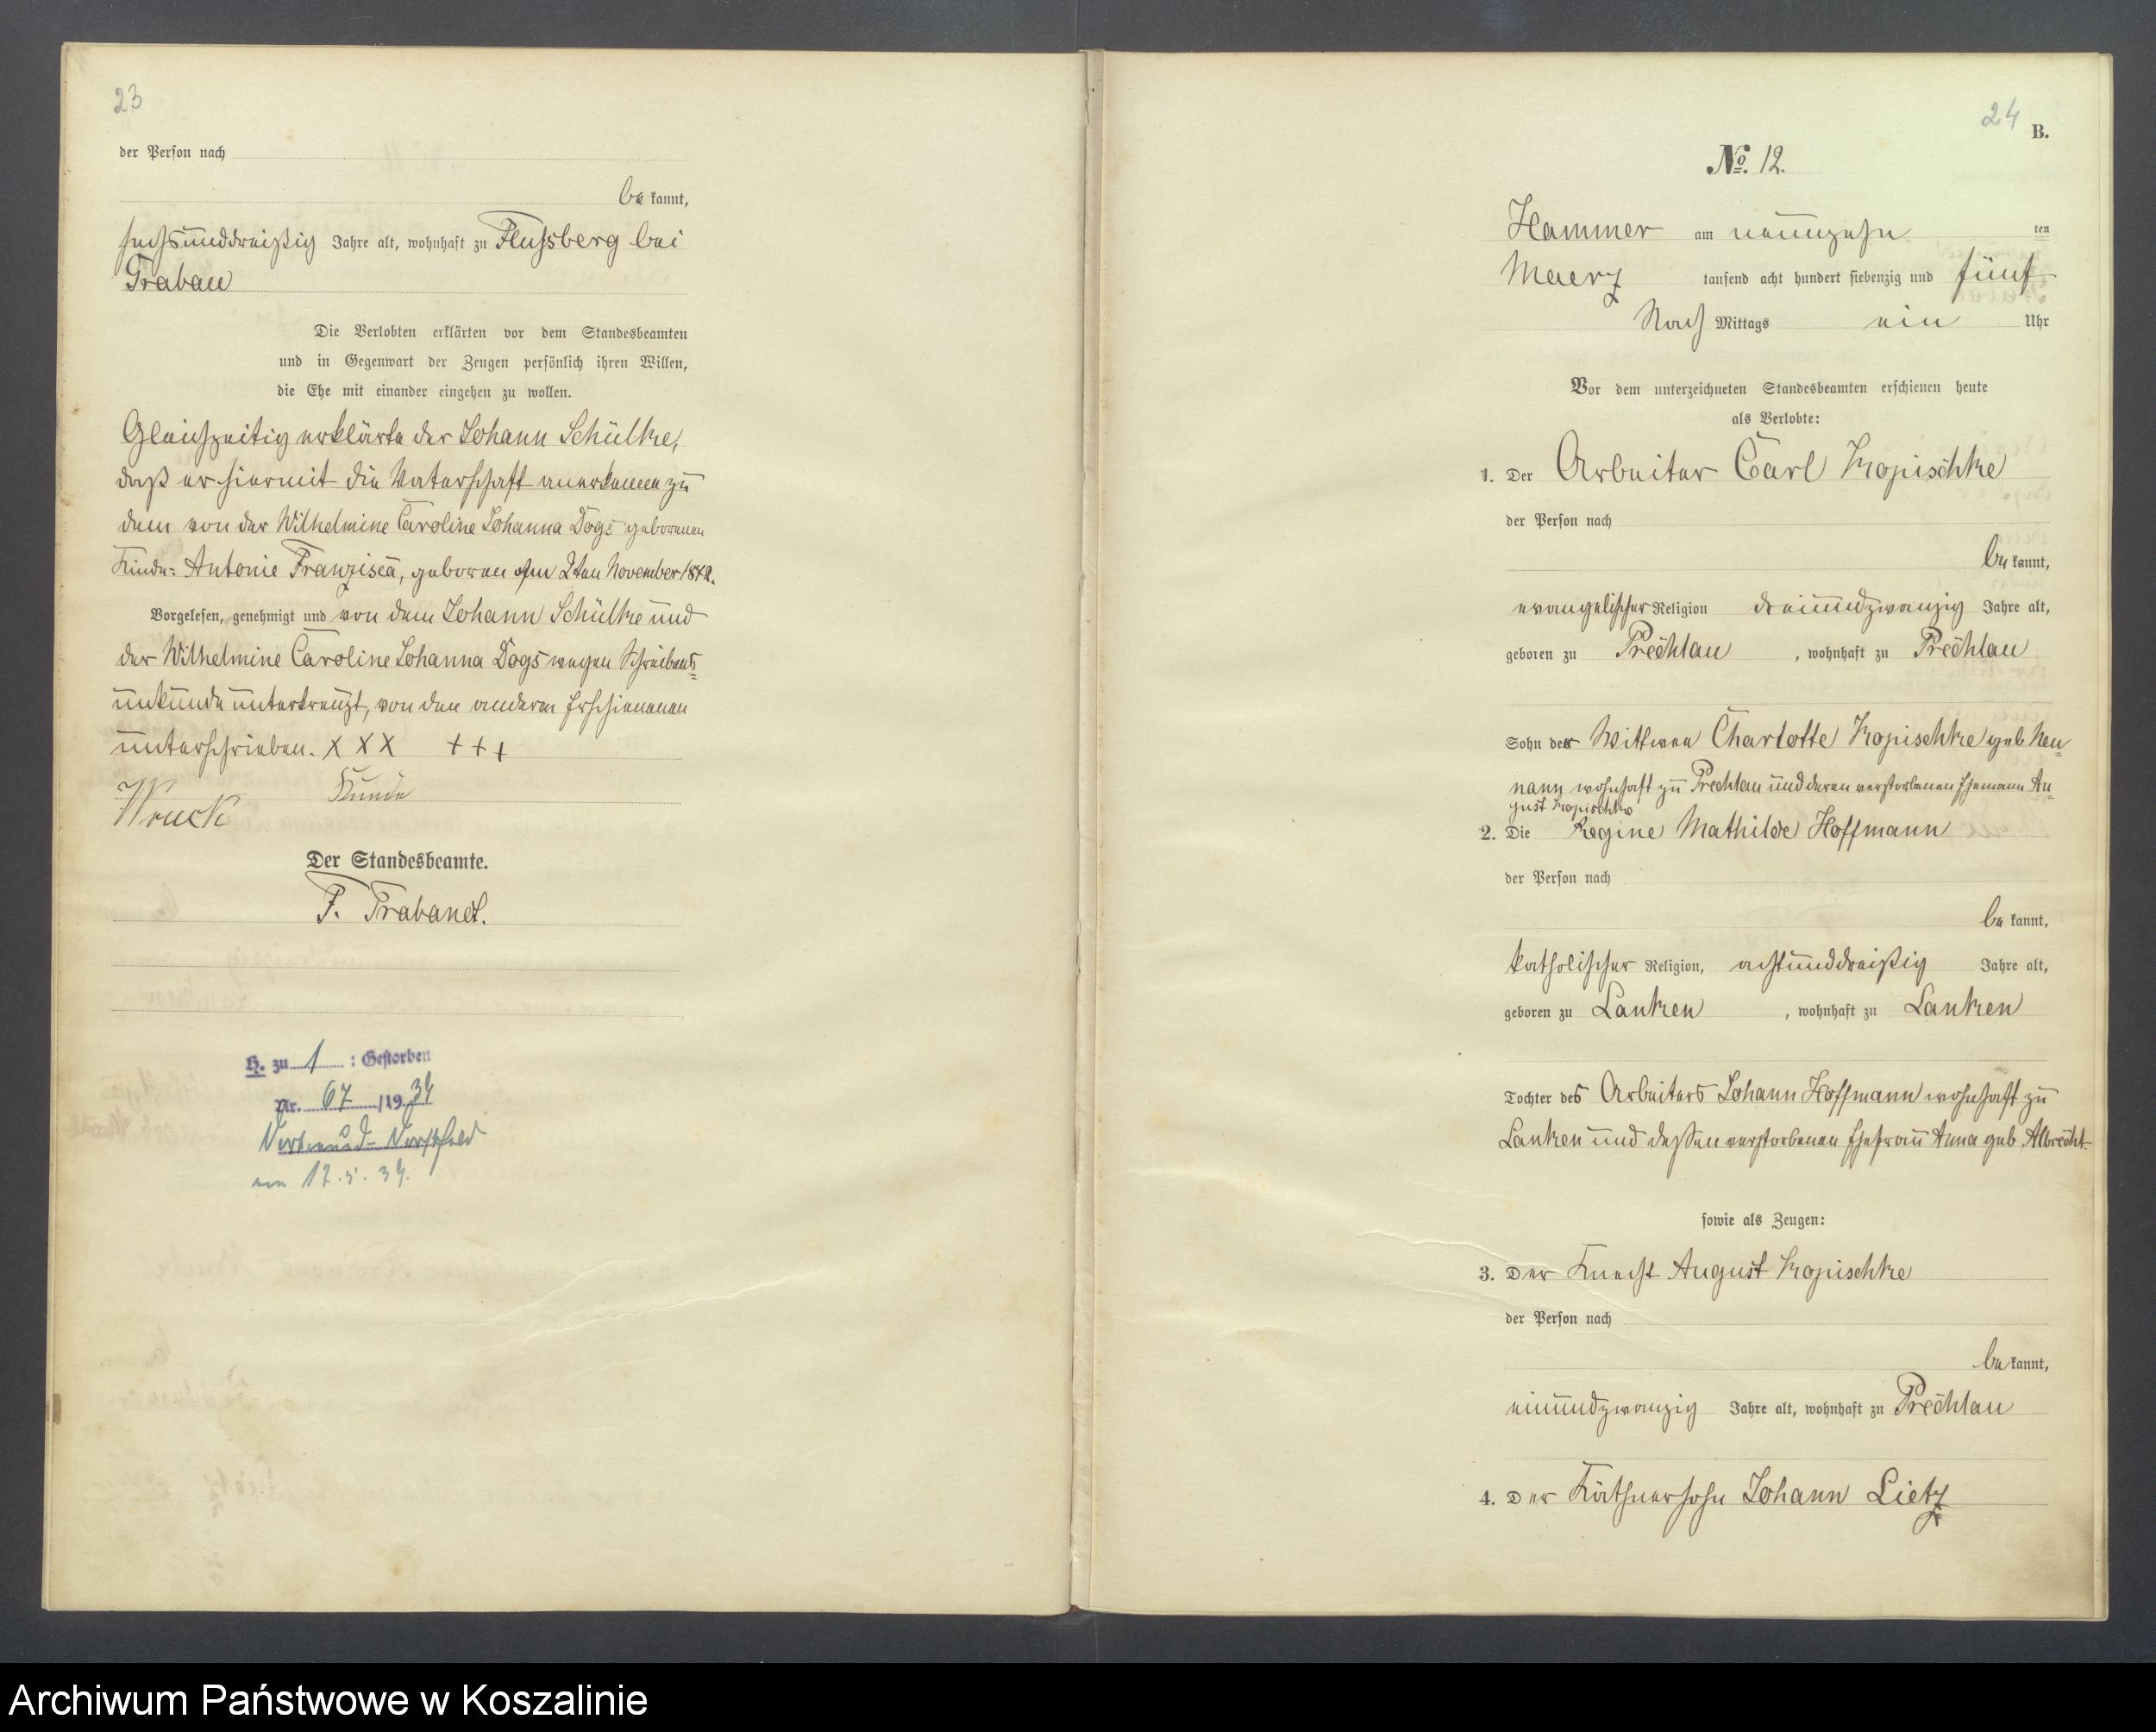 23
der Person nach
be kannt,
sechsunddreißig Jahre alt, wohnhaft zu Flußberg bei
Grabau
Die Verlobten erklärten vor dem Standesbeamten
und in Gegenwart der Zeugen persönlich ihren Willen,
die Ehe mit einander eingehen zu wollen.
Gleichzeitig erklärte der Johann Schülke,
daß er hiermit die Vaterschaft anerkenne zu
dem von der Wilhelmine Caroline Johanna Dogs geborenen
Kinde: Antonie Franzisca, geboren am 2ten November 1872.
Vorgelesen, genehmigt und von dem Johann Schülke und
der Wilhelmine Caroline Johanna Dogs wegen Schreibens
unkunde unterkreuzt, von den anderen Erschienenen
unterschrieben. X X X + + +
Wruck
Der Standesbeamte.
H. zu 1 : Gestorben
Nr. 67 /19 34
17.5.34.
24
B.
No. 12.
Hammer am neunzehn ten
Maerz tausend acht hundert siebenzig und fünf
Nach Mittags ein Uhr
Vor dem unterzeichneten Standesbeamten erschienen heute
als Verlobte:
1. Der Arbeiter Carl Kopischke
der Person nach
be kannt,
evangelischer Religion dreiundzwanzig Jahre alt,
geboren zu Prechlau , wohnhaft zu Prechlau
Sohn der Wittwee Charlotte Kopischke geb Neu=
mann wohnhaft zu Prechlau und deren verstorbenen Ehemann Au=
gust Kopischke
2. Die Regine Mathilde Hoffmann
der Person nach
be kannt,
katholischer Religion, achtunddreißig Jahre alt,
geboren zu Lanken , wohnhaft zu Lanken
Tochter des Arbeiters Johann Hoffmann wohnhaft zu
Lanken und dessen verstorbenen Ehefrau Anna geb. Albrecht.
sowie als Zeugen:
3. Der Knecht August Kopischke
der Person nach
be kannt,
einundzwanzig Jahre alt, wohnhaft zu Prechlau
4. Der Käthnersohn Johann Lietz
Archiwum Państwowe w Koszalinie